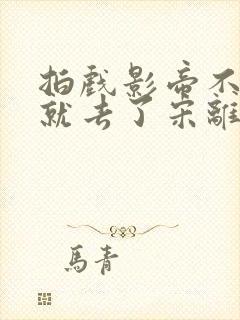 拍戏影帝不
就去了宋離
馬青